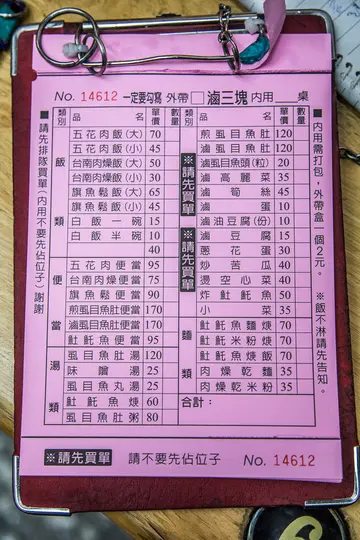 No. 14612 一定要勾寫 外帶□滷三塊 內用 桌
類別 品名 單價 數量
飯類
五花肉飯(大) 70
五花肉飯(小) 45
台南肉燥飯(大) 50
台南肉燥飯(小) 30
旗魚鬆飯(大) 65
旗魚鬆飯(小) 45
白飯一碗 15
白飯半碗 10
40
便當
五花肉便當 95
台南肉燥便當 75
旗魚鬆便當 90
煎虱目魚肚便當 170
滷虱目魚肚便當 170
魭魠魚便當 95
湯類
虱目魚肚湯 120
味噌湯 25
虱目魚丸湯 25
魠魚焿 60
虱目魚粥 80
類別 品名 單價 數量
※請先買單
※請先買單
煎虱目魚肚 120
滷虱目魚肚 120
滷虱目魚頭(粒) 20
滷高麗菜 35
滷筍絲 45
滷蛋 10
滷油豆腐(份) 10
滷豆腐 15
蔥花蛋 30
炒苦瓜 40
燙空心菜 40
炸魠魚 50
小菜 35
麵類
魠魚麵焿 70
魠魚米粉焿 70
魠魚飯焿 70
肉燥乾麵 35
肉燥乾米粉 35
合計:
■請先排隊買單(內用不要先佔位子)謝謝
■內用需打包,外帶盒一個2元。 ※飯不淋請先告知。
※請先買單 請不要先佔位子 No. 14612